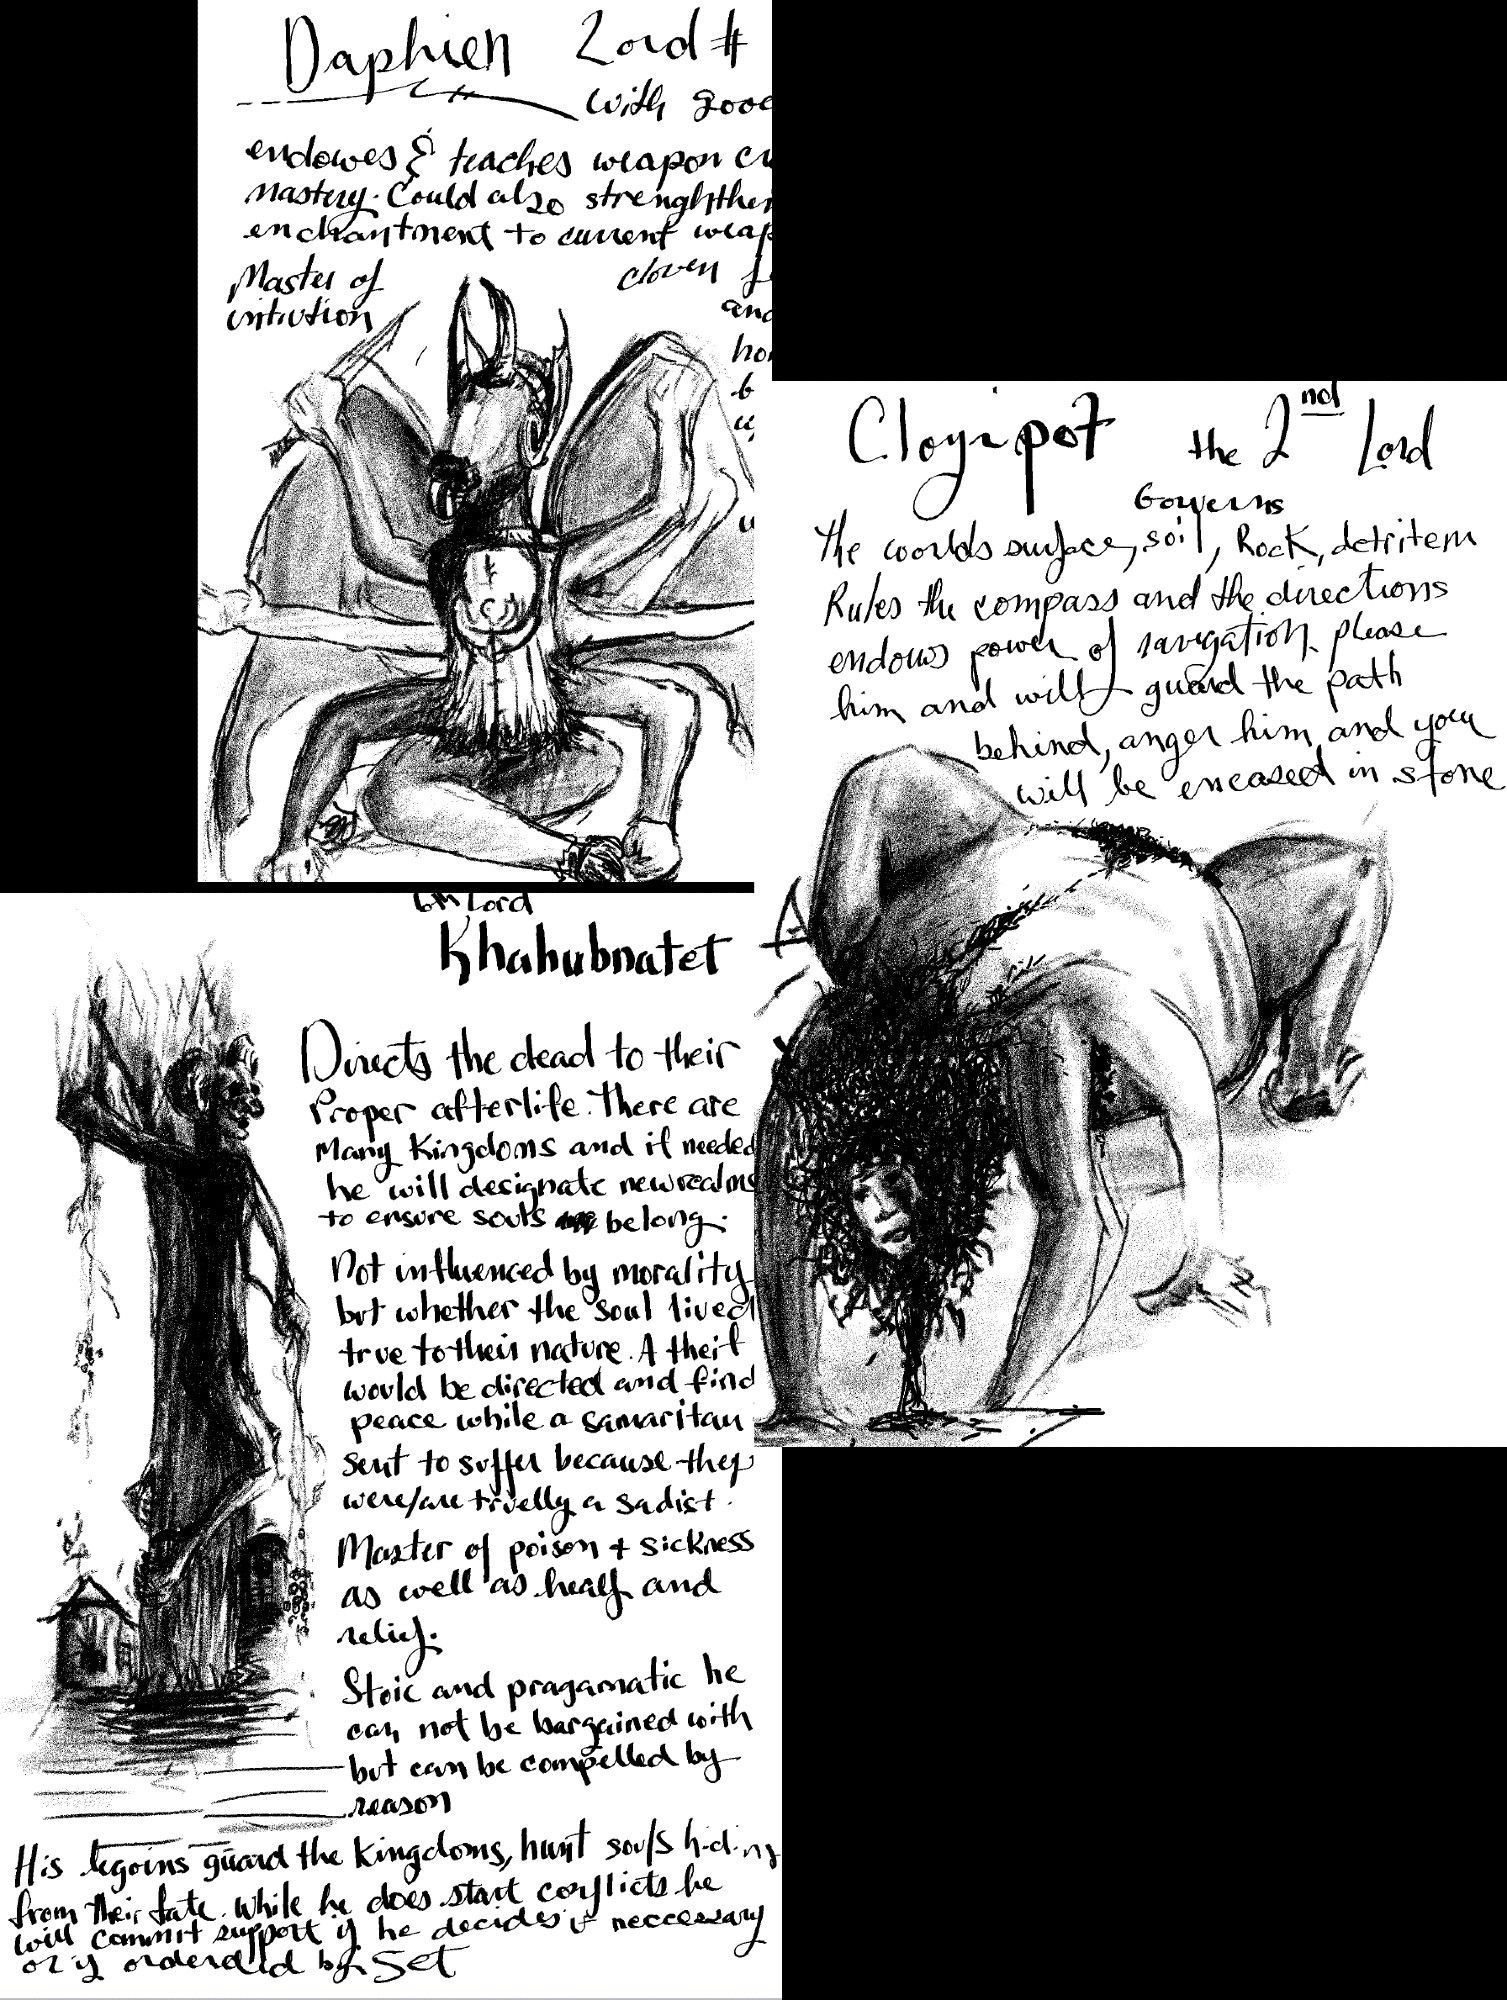 Daphien Lord #
with good
endowes & teaches weapon
mastery. Could also strenghthen
enchantment to current weap
Master of
intivtion
cloven
and
Cloyipot the 2nd Lord
Governs
The worlds surface, soil, Rock, detritem
Rules the compass and the directions
endows power of navigation please
him and will guard the path
behind, anger him and you
will be encased in stone
6th Lord
Khahubnatet
Directs the dead to their
Proper afterlife. There are
Many Kingdoms and if needed
he will designate new realms
to ensure souls belong.
Not influenced by morality
but whether the soul lived
true to their nature. A theif
would be directed and find
peace while a samaritan
sent to suffer because they
were/are truelly a sadist.
Master of poison + sickness
as well as healf and
relief.
Stoic and pragamatic he
can not be bargained with
but can be compelled by
reason
His legoins guard the Kingdoms, hunt souls hiding
from their fate. While he does start conflicts he
will commit support if he decides is neccessary
or if ordered by Set